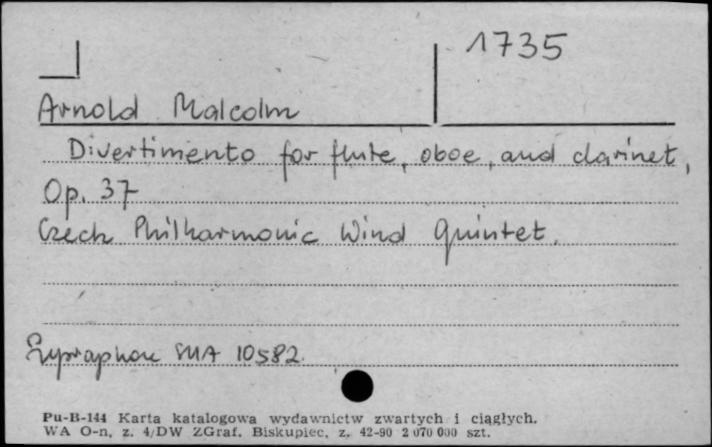 1735
Arnold Malcolm
Divertimento for flute, oboe, and clarinet,
Op. 37
Czech Philharmonic Wind Quintet.
Supraphon SUA 10582.
Pu-B-144 Karta katalogowa wydawnictw zwartych i ciągłych.
WA O-n, z. 4/DW ZGraf. Biskupiec, z. 42-90 2 070 000 szt.